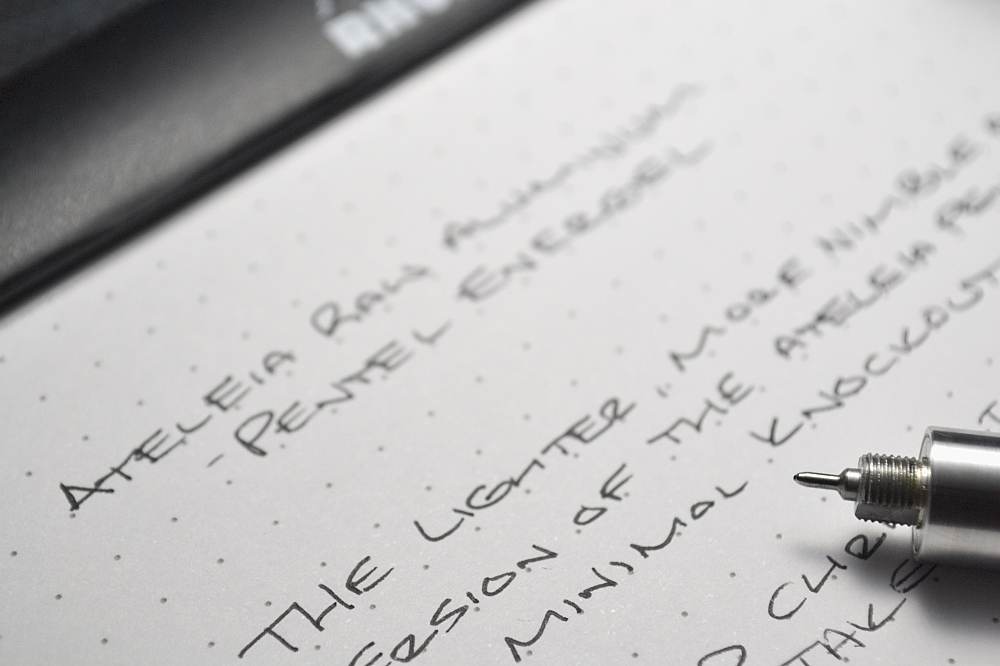 ATELEIA RAW ALUMINIUM
- PENTEL ENERGEL
THE LIGHTER, MORE NIMBLE
ERSION OF THE ATELEIA PE
MINIMAL KNOCKOUT
TAKE